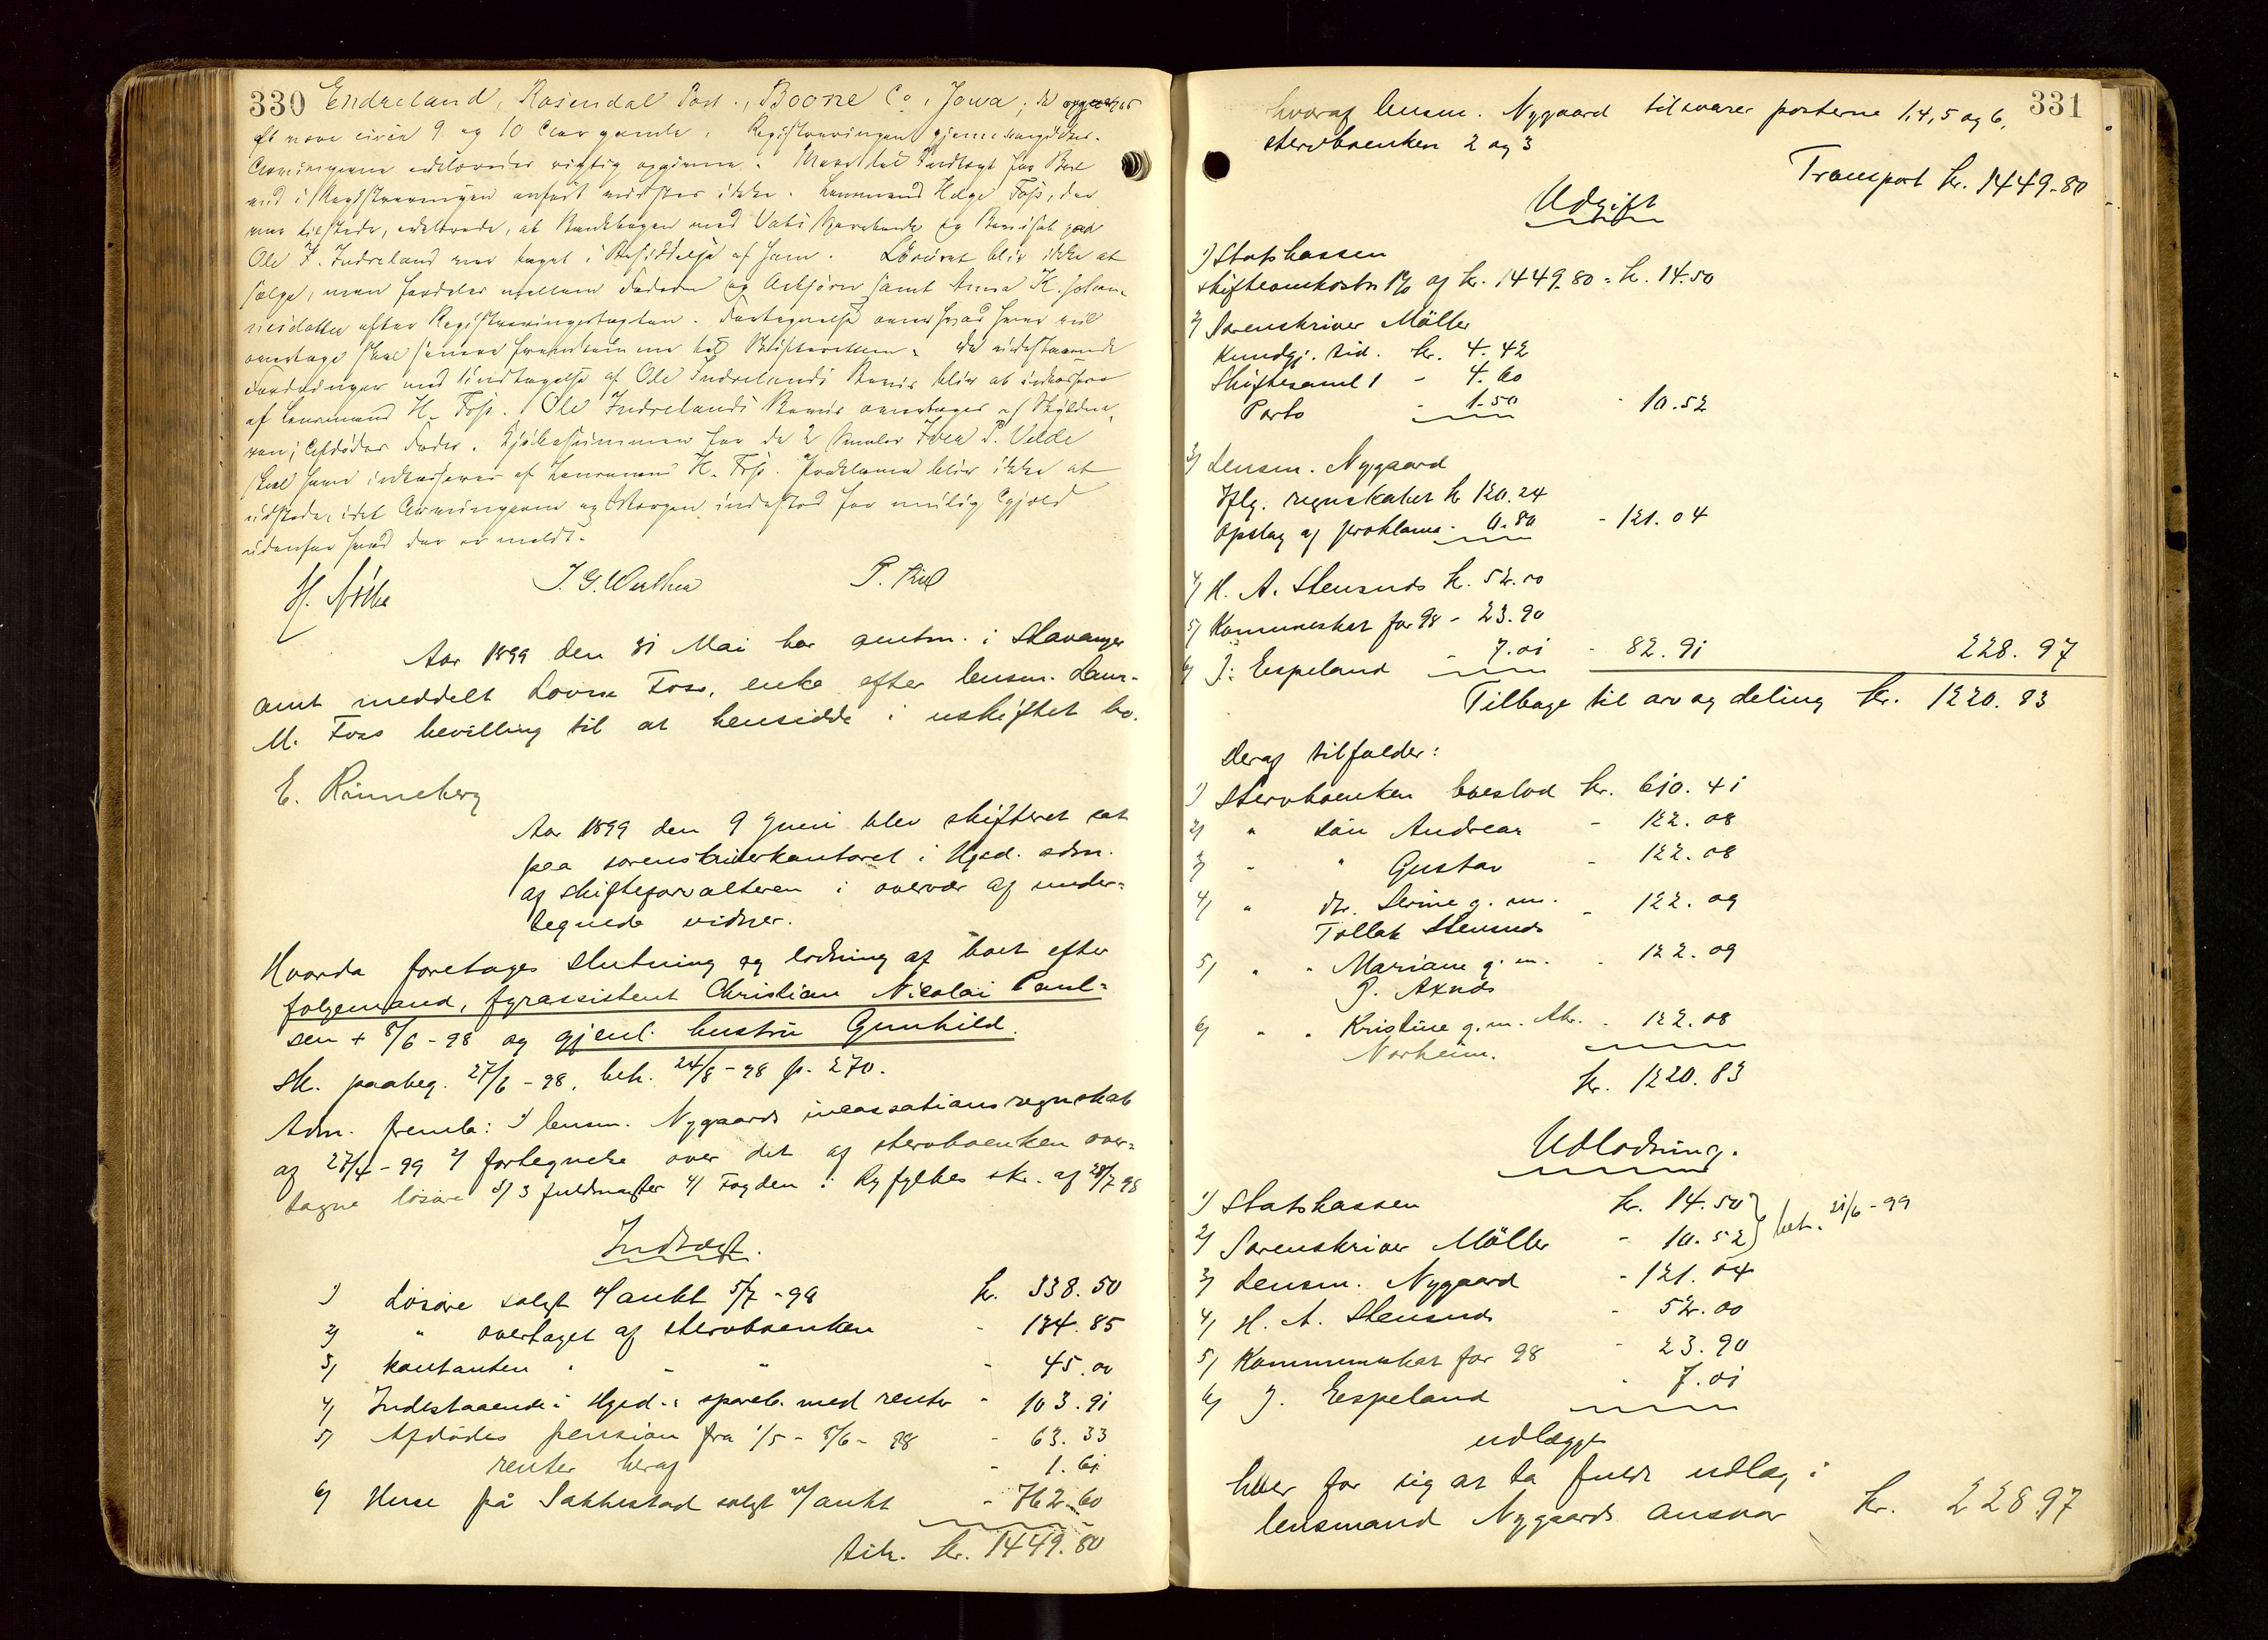 330 Endreland, Rosendal Post., Boone Co, Jowa; de opgaves
at være circa 9 og 10 Aar gamle. Registreringen gjennemgikkes.
Arvingerne erklæredes rigtig opgivne. Mere til Indtægt for Boet
end i Registreringen anført vidstes ikke. Lensmand Helge Foss, der
var tilstede, erklærede, at Bankbogen med Vats Sparebank og Beviset paa
Ole K. Indreland var taget i Besiddelse af ham. Løsøret blir ikke at
sælge, men fordeles mellem Faderen og Asbjørn samt Anna K. Johan-
nesdatter efter Registreringstaxten. Fortegnelse over hvad hver vil
overtage skal senere fremkomme til Skifteretten. De udestaaende
Fordringer med Undtagelse af Ole Indrelands Bevis blir at indkassere
af Lensmand H. Foss. Ole Indrelands Bevis overtages af Skyldne-
ren, Afdødes Fader. Kjøbesummen for de 2 Iver P. Velde
skal have indkasseres af Lensmand H. Foss. Proklama blir ikke at
udstede, idet Arvingerne og Værgen indestod for mulig Gjæld
udenfor hvad der er meldt.
H. P.
Aar 1899 den 31 Mai har amtm. i Stavanger
amt meddelt Lovise Foss, enke efter lensm. Laur.
M. Foss bevilling til at hensidde i uskiftet bo.
E. Rinneberg
Aar 1899 den 9 Juni blev skifteret sat
paa sorenskriverkontoret i Hgsd. adm.
af skifteforvalteren i overvær af under-
tegnede vidner.
Hvorda foretoges slutning og lodning af boet efter
folgemand, fyrassistent Christian Nicolai Paul-
sen + 8/6-98 og gjenl. hustru Gunhild.
Sk. paabeg. 27/6-98, beh. 24/8-98 p. 270.
Adm. freml: 1) lensm. Nygaards incassationsregnskab
af 27/4-99 2) fortegnelse over det af stervboenken over-
tagne løsøre 3) 3 fuldmagter 4) Fogden i Ryfylkes skr. af 28/7 98
Indtægt.
1) Løsøre solgt v/ aukt 5/7-98 kr. 338.50
2) " overtaget af stervboenken - 134.85
3) kontanten " - " - 45.00
4) Indestaaende i Hgsd.s spareb. med renter - 103.91
5) Afdødes pension fra 1/5 - 8/6-98 - 63.33
renter heraf - 1.61
6) Huse på Sakkestad solgt v/ aukt - 762.60
tils. kr. 1449.80
331
hvoraf lensm. Nygaard tilsvarer posterne 1,4,5 og 6,
stervboenken 2 og 3
Transport kr. 1449-80
Udgift
1) Statskassen
skifteomkostn 1% af kr. 1449.80 = kr. 14.50
2) Sorenskriver Möller
Kundgj. tid. kr. 4.42
Skiftesaml 1 - 4.60
Porto - 1.50 - 10.52
3) Lensm. Nygaard
Iflg. regnskabet kr 120.24
Opslag af proklama - 0.80 - 121.04
4) H. A. Stensnes kr. 52.00
5) Kommuneskat for 98 - 23.90
6) J. Espeland - 7.01 - 82.91 228.97
Tilbage til arv og deling kr. 1220.83
Deraf tilfalder:
1) Stervboenken boeslod kr. 610.41
2) " søn Andreas - 122.08
3) - " Gustav - 122.08
4) " dtr. Serine g. m.
Tollak Stensnes - 122.09
5) " " Mariane g. m. - 122.09
P. Axnes
6) " " Kristine g. m. - 122.08
Norheim.
kr. 1220.83
Udlodning.
1) Statskassen kr. 14.50
2) Sorenskriver Möller - 10.52 } bet. 21/6-99
3) Lensm. Nygaard - 121.04
4) H. A. Stensnes - 52.00
5) Kommuneskat for 98 - 23.90
6) J. Espeland - 7.01
udlægges
hver for sig at ta fuldt udlæg i
lensmand Nygaards ansvar kr. 228.97